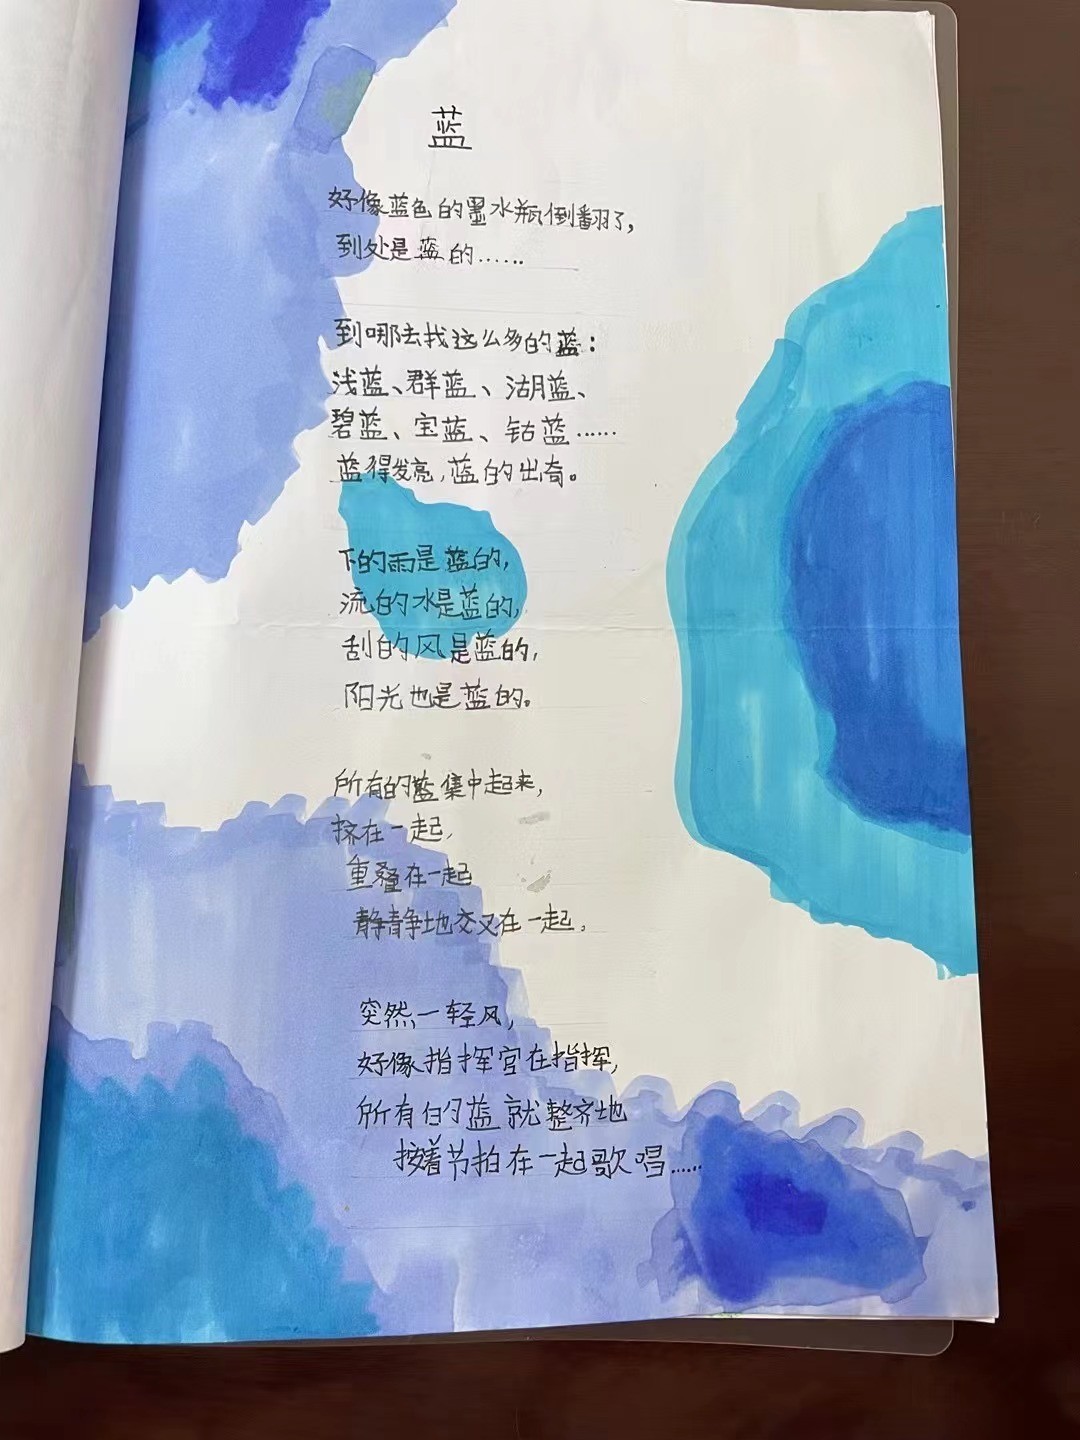 蓝
好像蓝色的墨水瓶倒翻了，
到处是蓝的……
到哪去找这么多的蓝：
浅蓝、群蓝、湖蓝、
碧蓝、宝蓝、钴蓝……
蓝得发亮，蓝的出奇。
下的雨是蓝的，
流的水是蓝的，
刮的风是蓝的，
阳光也是蓝的。
所有的蓝集中起来，
挤在一起，
重叠在一起
静静地交叉在一起。
突然，一轻风，
好像指挥官在指挥，
所有的蓝就整齐地
按着节拍在一起歌唱……